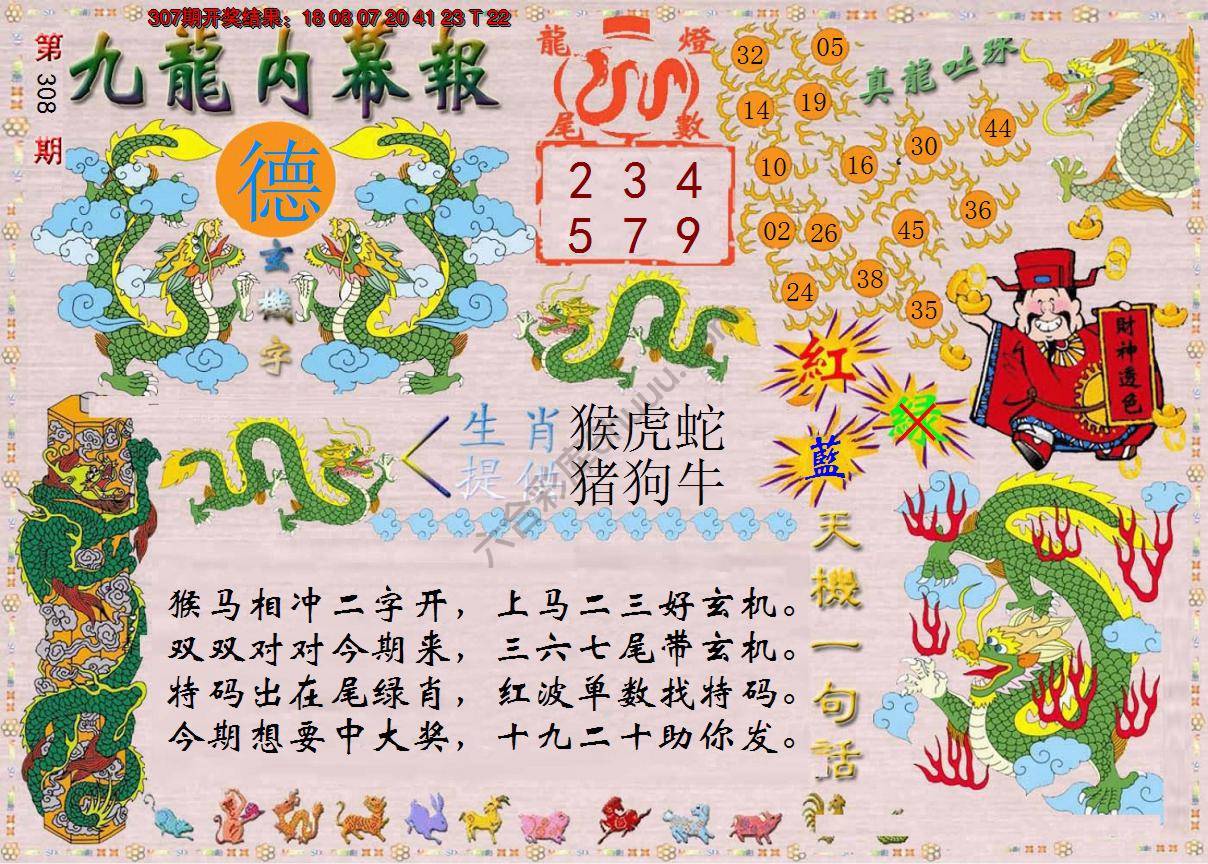 307期开奖结果：18 06 07 20 41 23 T 22
第308期
九龍内幕報
德
玄機字
龍燈
尾數
2 3 4
5 7 9
真龍吐珠
32 05
14 19
30 44
10 16
36
02 26 45
38
24 35
財神透色
紅
绿
藍
生肖
提供
猴虎蛇
猪狗牛
天機一句话
猴马相冲二字开，上马二三好玄机。
双双对对今期来，三六七尾带玄机。
特码出在尾绿肖，红波单数找特码。
今期想要中大奖，十九二十助你发。